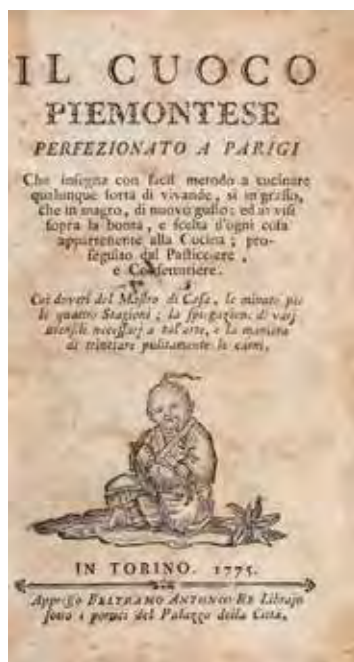 IL CUOCO
PIEMONTESE
PERFEZIONATO A PARIGI
Che insegna con facil metodo a cucinare
qualunque sorta di vivande, sì in grasso,
che in magro, di nuovo gusto; ed avvisi
sopra la bontà, e scelta d'ogni cosa
appartenente alla Cucina; pro-
seguito dal Pasticcere,
e Confetturiere.
Coi doveri del Mastro di Casa, le minute per
le quattro Stagioni, la spiegazione di varj
utensili necessarj a tal'arte, e la maniera
di trinciare pulitamente le carni.
IN TORINO. 1775.
Appresso BELTRAMO ANTONIO RE Librajo
sotto i portici del Palazzo della Città.